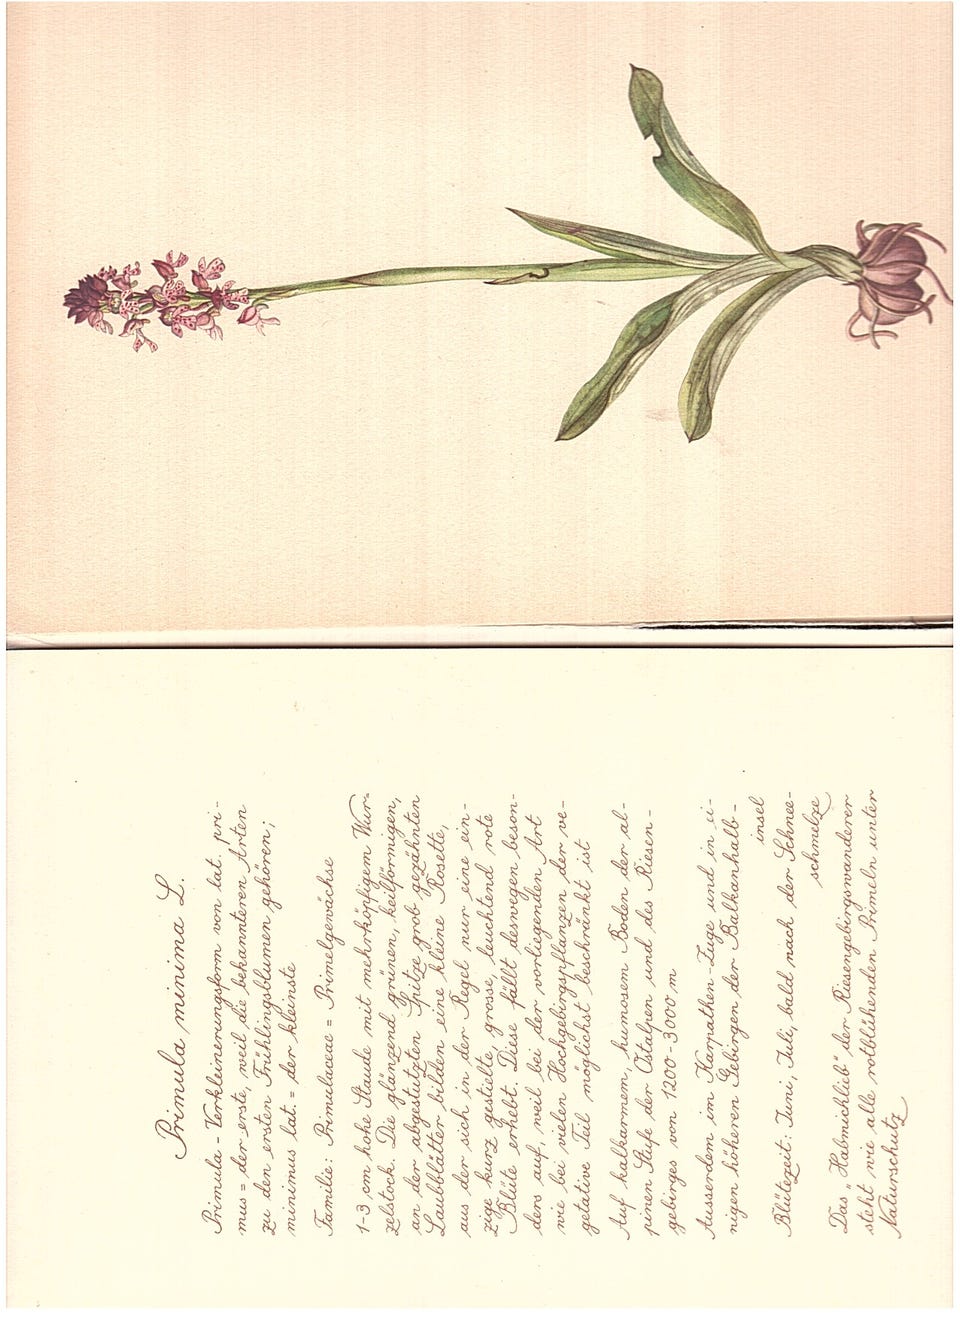 Primula minima L.
Primula - Verkleinerungsform von lat. pri-
mus = der erste, weil die bekannteren Arten
zu den ersten Frühlingsblumen gehören;
minimus lat. = der kleinste
Familie: Primulaceae = Primelgewächse
1-3 cm hohe Staude mit mehrköpfigem Wur-
zelstock. Die glänzend grünen, keilförmigen,
an der abgestutzten Spitze grob gezähnten
Laubblätter bilden eine kleine Rosette,
aus der sich in der Regel nur eine ein-
zige kurz gestielte grosse, leuchtend rote
Blüte erhebt. Diese fällt deswegen beson-
ders auf, weil bei der vorliegenden Art
wie bei vielen Hochgebirgspflanzen der ve-
getative Teil möglichst beschränkt ist
Auf kalkarmem, humosem Boden der al-
pinen Stufe der Ostalpen und des Riesen-
gebirges von 1200-3000 m
Ausserdem im Karpathen-Zuge und in ei-
nigen höheren Gebirgen der Balkanhalb-
insel
Blütezeit: Juni, Juli, bald nach der Schnee-
schmelze
Das „Habmichlieb" der Riesengebirgswanderer
steht wie alle rotblühenden Primeln unter
Naturschutz